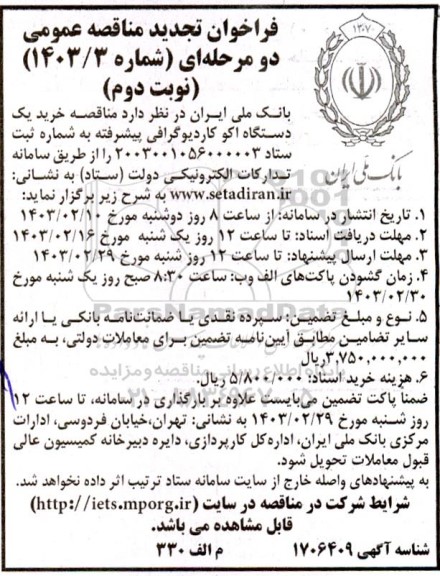 فراخوان تجدید مناقصه عمومی
دو مرحله‌ای (شماره ۱۴۰۳/۳)
(نوبت دوم)
۱۳۰۷
بانک ملی ایران
بانک ملی ایران در نظر دارد مناقصه خرید یک
دستگاه اکو کاردیوگرافی پیشرفته به شماره ثبت
ستاد ۲۰۰۳۰۰۱۰۵۶۰۰۰۰۰۳ را از طریق سامانه
تدارکات الکترونیکی دولت (ستاد) به نشانی:
www.setadiran.ir به شرح زیر برگزار نماید:
۱. تاریخ انتشار در سامانه: از ساعت ۸ روز دوشنبه مورخ ۱۴۰۳/۰۲/۱۰
۲. مهلت دریافت اسناد: تا ساعت ۱۲ روز یک شنبه مورخ ۱۴۰۳/۰۲/۱۶
۳. مهلت ارسال پیشنهاد: تا ساعت ۱۲ روز شنبه مورخ ۱۴۰۳/۰۲/۲۹
۴. زمان گشودن پاکت‌های الف وب: ساعت ۸:۳۰ صبح روز یک شنبه مورخ
۱۴۰۳/۰۲/۳۰
۵. نوع و مبلغ تضمین: سپرده نقدی یا ضمانت‌نامه بانکی یا ارائه
سایر تضامین مطابق آیین‌نامه تضمین برای معاملات دولتی، به مبلغ
۳,۷۵۰,۰۰۰,۰۰۰ریال
۶. هزینه خرید اسناد: ۵/۸۰۰/۰۰۰ ریال.
ضمنا پاکت تضمین می‌بایست علاوه بر بارگذاری در سامانه، تا ساعت ۱۲
روز شنبه مورخ ۱۴۰۳/۰۲/۲۹ به نشانی: تهران،خیابان فردوسی، ادارات
مرکزی بانک ملی ایران، اداره‌کل کارپردازی، دایره دبیرخانه کمیسیون عالی
قبول معاملات تحویل شود.
به پیشنهادهای واصله خارج از سایت سامانه ستاد ترتیب اثر داده نخواهد شد.
شرایط شرکت در مناقصه در سایت (http://iets.mporg.ir)
قابل مشاهده می باشد.
شناسه آگهی ۱۷۰۶۴۰۹ م الف ۳۳۰